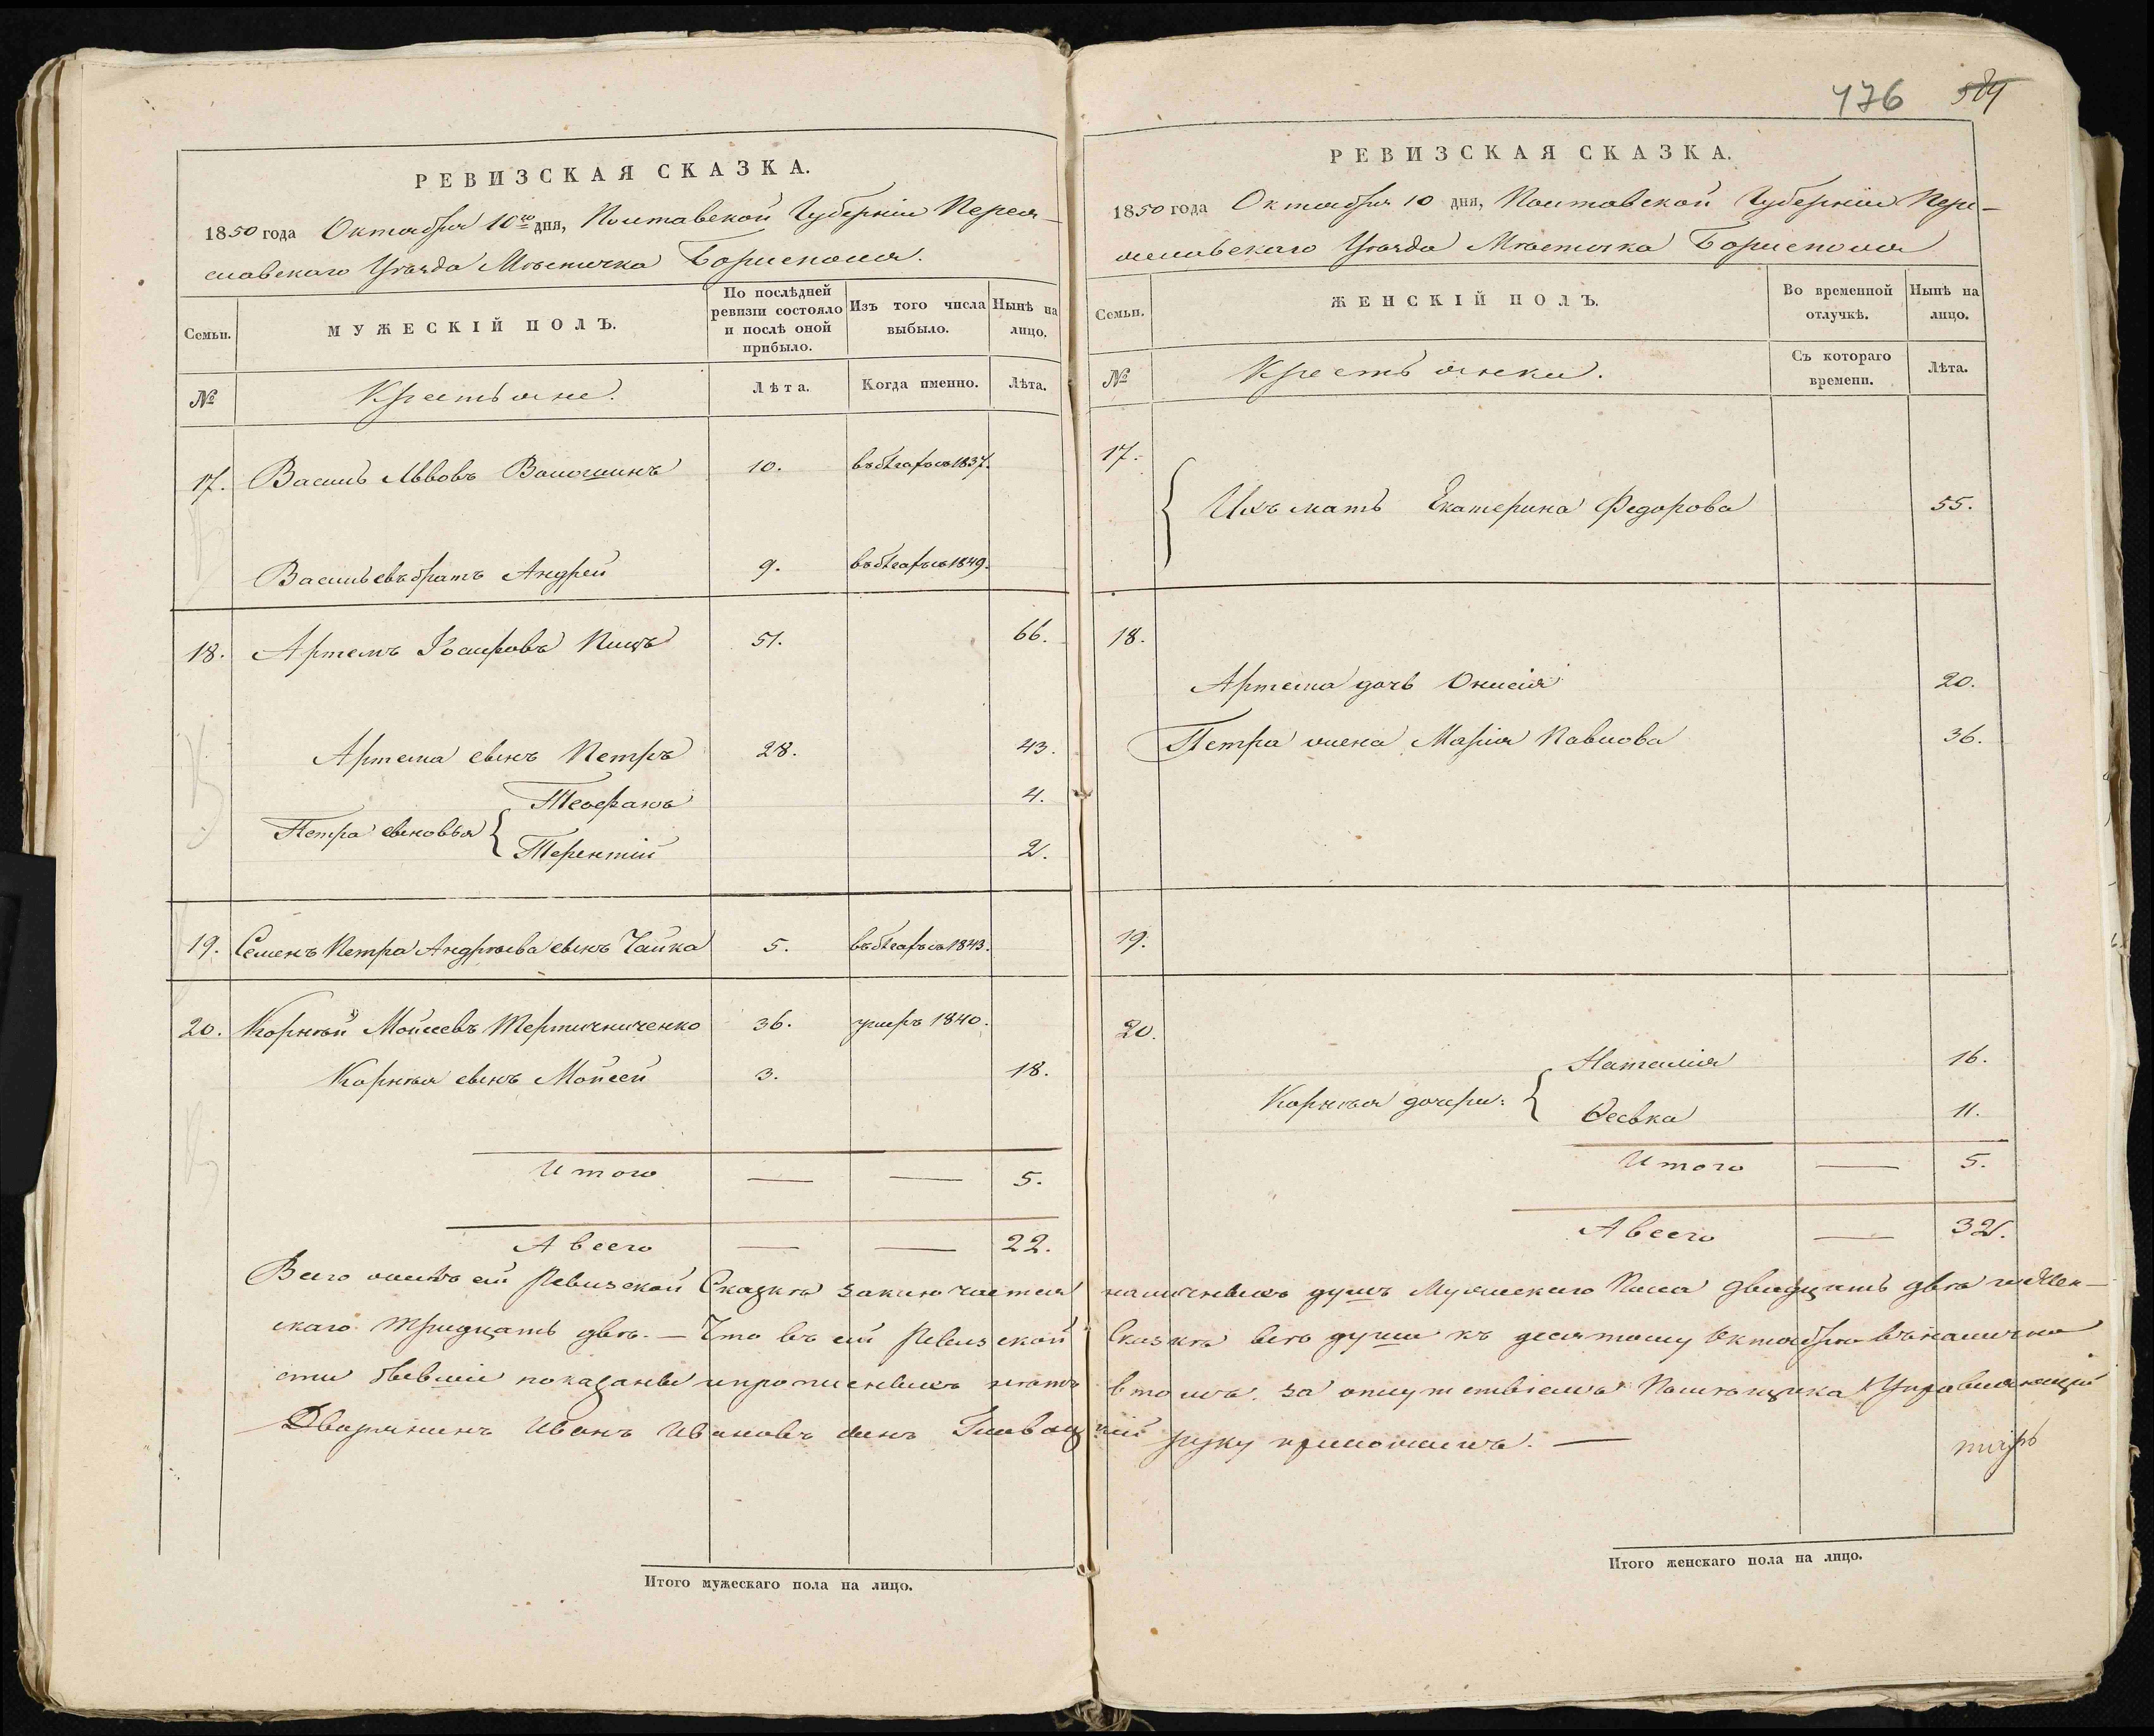 РЕВИЗСКАЯ СКАЗКА.
1850 года Октября 10го дня, Полтавской Губернии Перея-
славскаго Уѣзда Мѣстичка Борисполя.
Семьи.
МУЖЕСКІЙ ПОЛЪ.
По послѣдней ревизіи состояло и послѣ оной прибыло.
Изъ того числа выбыло.
Нынѣ на лицо.
№
Крестьяне.
Лѣта.
Когда именно.
Лѣта.
17. Василь Львовъ Волошинъ 10. въ бѣгахъ съ 1837.
Васильевъ братъ Андрей 9. въ бѣгахъ съ 1849.
18. Артемъ 51. 66.
Артема сынъ Петръ 28. 43.
Теофанъ 4.
Петра сыновья {
Терентій 2.
19. Семенъ Петра Андрѣева сынъ Чайка 5. въ бѣгахъ съ 1843.
20. Корнѣй Моисеевъ Тертичниченко 36. умеръ 1840.
Корнѣя сынъ Мойсей 3. 18.
Итого — — 5.
А всего — — 22.
Итого мужескаго пола на лицо.
476 584
РЕВИЗСКАЯ СКАЗКА.
1850 года Октября 10 дня, Полтавской Губерніи Пере-
яславскаго Уѣзда Мѣстичка Борисполя
Семьи.
ЖЕНСКІЙ ПОЛЪ.
Во временной отлучкѣ.
Нынѣ на лицо.
№
Крестьянки.
Съ котораго времени.
Лѣта.
17.
{ Ихъ мать Екатерина Федорова 55.
18.
Артема дочь Онисія 20.
Петра жена Марія Павлова 36.
19.
20.
Наталія 16.
Корнѣя дочери: {
Феська 11.
Итого — 5.
А всего — 32.
Всего въ сей Ревизской Сказкѣ заключается наличныхъ душъ Мужескаго Пола двадцать двѣ и Жен-
скаго тридцать двѣ. — Что въ сей Ревизской Сказкѣ всѣ души къ десятому Октября въ налично
сти бывшіе показаны и прописныхъ нѣтъ в томъ за отсутствіемъ Помѣщика Управляющій
Дворянинъ Иванъ Ивановъ сынъ руку приложилъ. —
Итого женскаго пола на лицо.